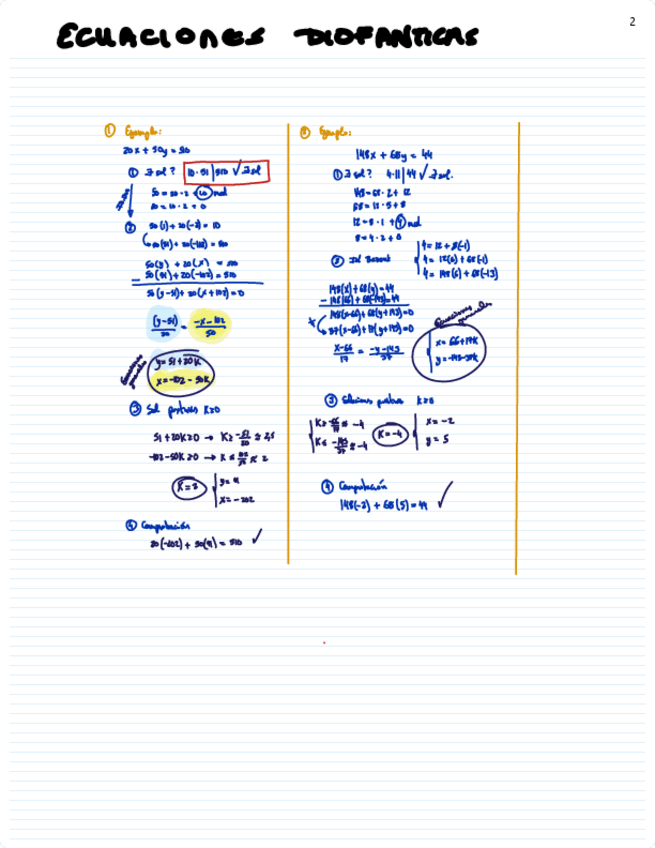 2
ECUACIONES DIOFANTICAS
① Ejemplo:
20x + 50y = 510
① ∃ sol? 10·51|510 ✓ ∃ sol
50 = 20·2 + 10 mcd
20 = 10·2 + 0
② 50(1) + 20(-2) = 10
50(51) + 20(-102) = 510
50(y) + 20(x) = 510
- 50(51) + 20(-102) = 510
50(y-51) + 20(x+102) = 0
(y-51)/20 = (-x-102)/50
y = 51 + 20K
x = -102 - 50K
③ Sol positivas K≥0
51 + 20K ≥ 0 → K ≥ -51/20
-102 - 50K ≥ 0 → K ≤
④ Comprobación
② Ejemplo:
148x + 68y = 44
① ∃ sol? 4·11|44 ✓ ∃ sol.
148 = 68·2 + 12
68 = 12·5 + 8
12 = 8·1 + 4 mcd
8 = 4·2 + 0
② Id Bezout
4 = 12 + 8(-1)
4 = 12(6) + 68(-1)
4 = 148(6) + 68(-13)
148(x) + 68(y) = 44
- 148(66) + 68(-143) = 44
148(x-66) + 68(y+143) = 0
37(x-66) + 17(y+143) = 0
(x-66)/17 = (-y-143)/37
Ecuaciones generales
x = 66 + 17K
y = -143 - 37K
③ Soluciones positivas K≥0
K ≥ -66/17 ≈ -4
K ≤ -143/37 ≈ -4
K = -4
x = -2
y = 5
④ Comprobación
148(-2) + 68(5) = 44 ✓